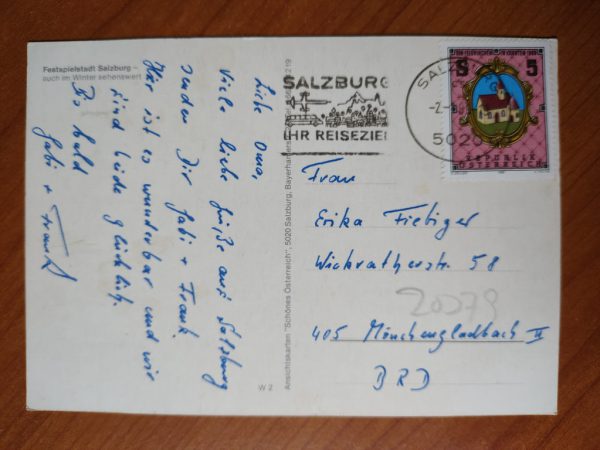 Festspielstadt Salzburg –
auch im Winter sehenswert
Liebe Oma,
viele liebe Grüße aus Salzburg
senden Dir Gabi + Frank.
Hier ist es wunderbar und wir
sind beide glücklich.
Bis bald
Gabi + Frank
W 2
Ansichtskarten "Schönes Österreich", 5020 Salzburg, Bayerhamerstraße
SALZBURG
IHR REISEZIEL
SALZ
5020
S 5
REPUBLIK
ÖSTERREICH
Frau
Erika Fiebiger
Wickratherstr. 58
20079
405 Mönchengladbach II
BRD